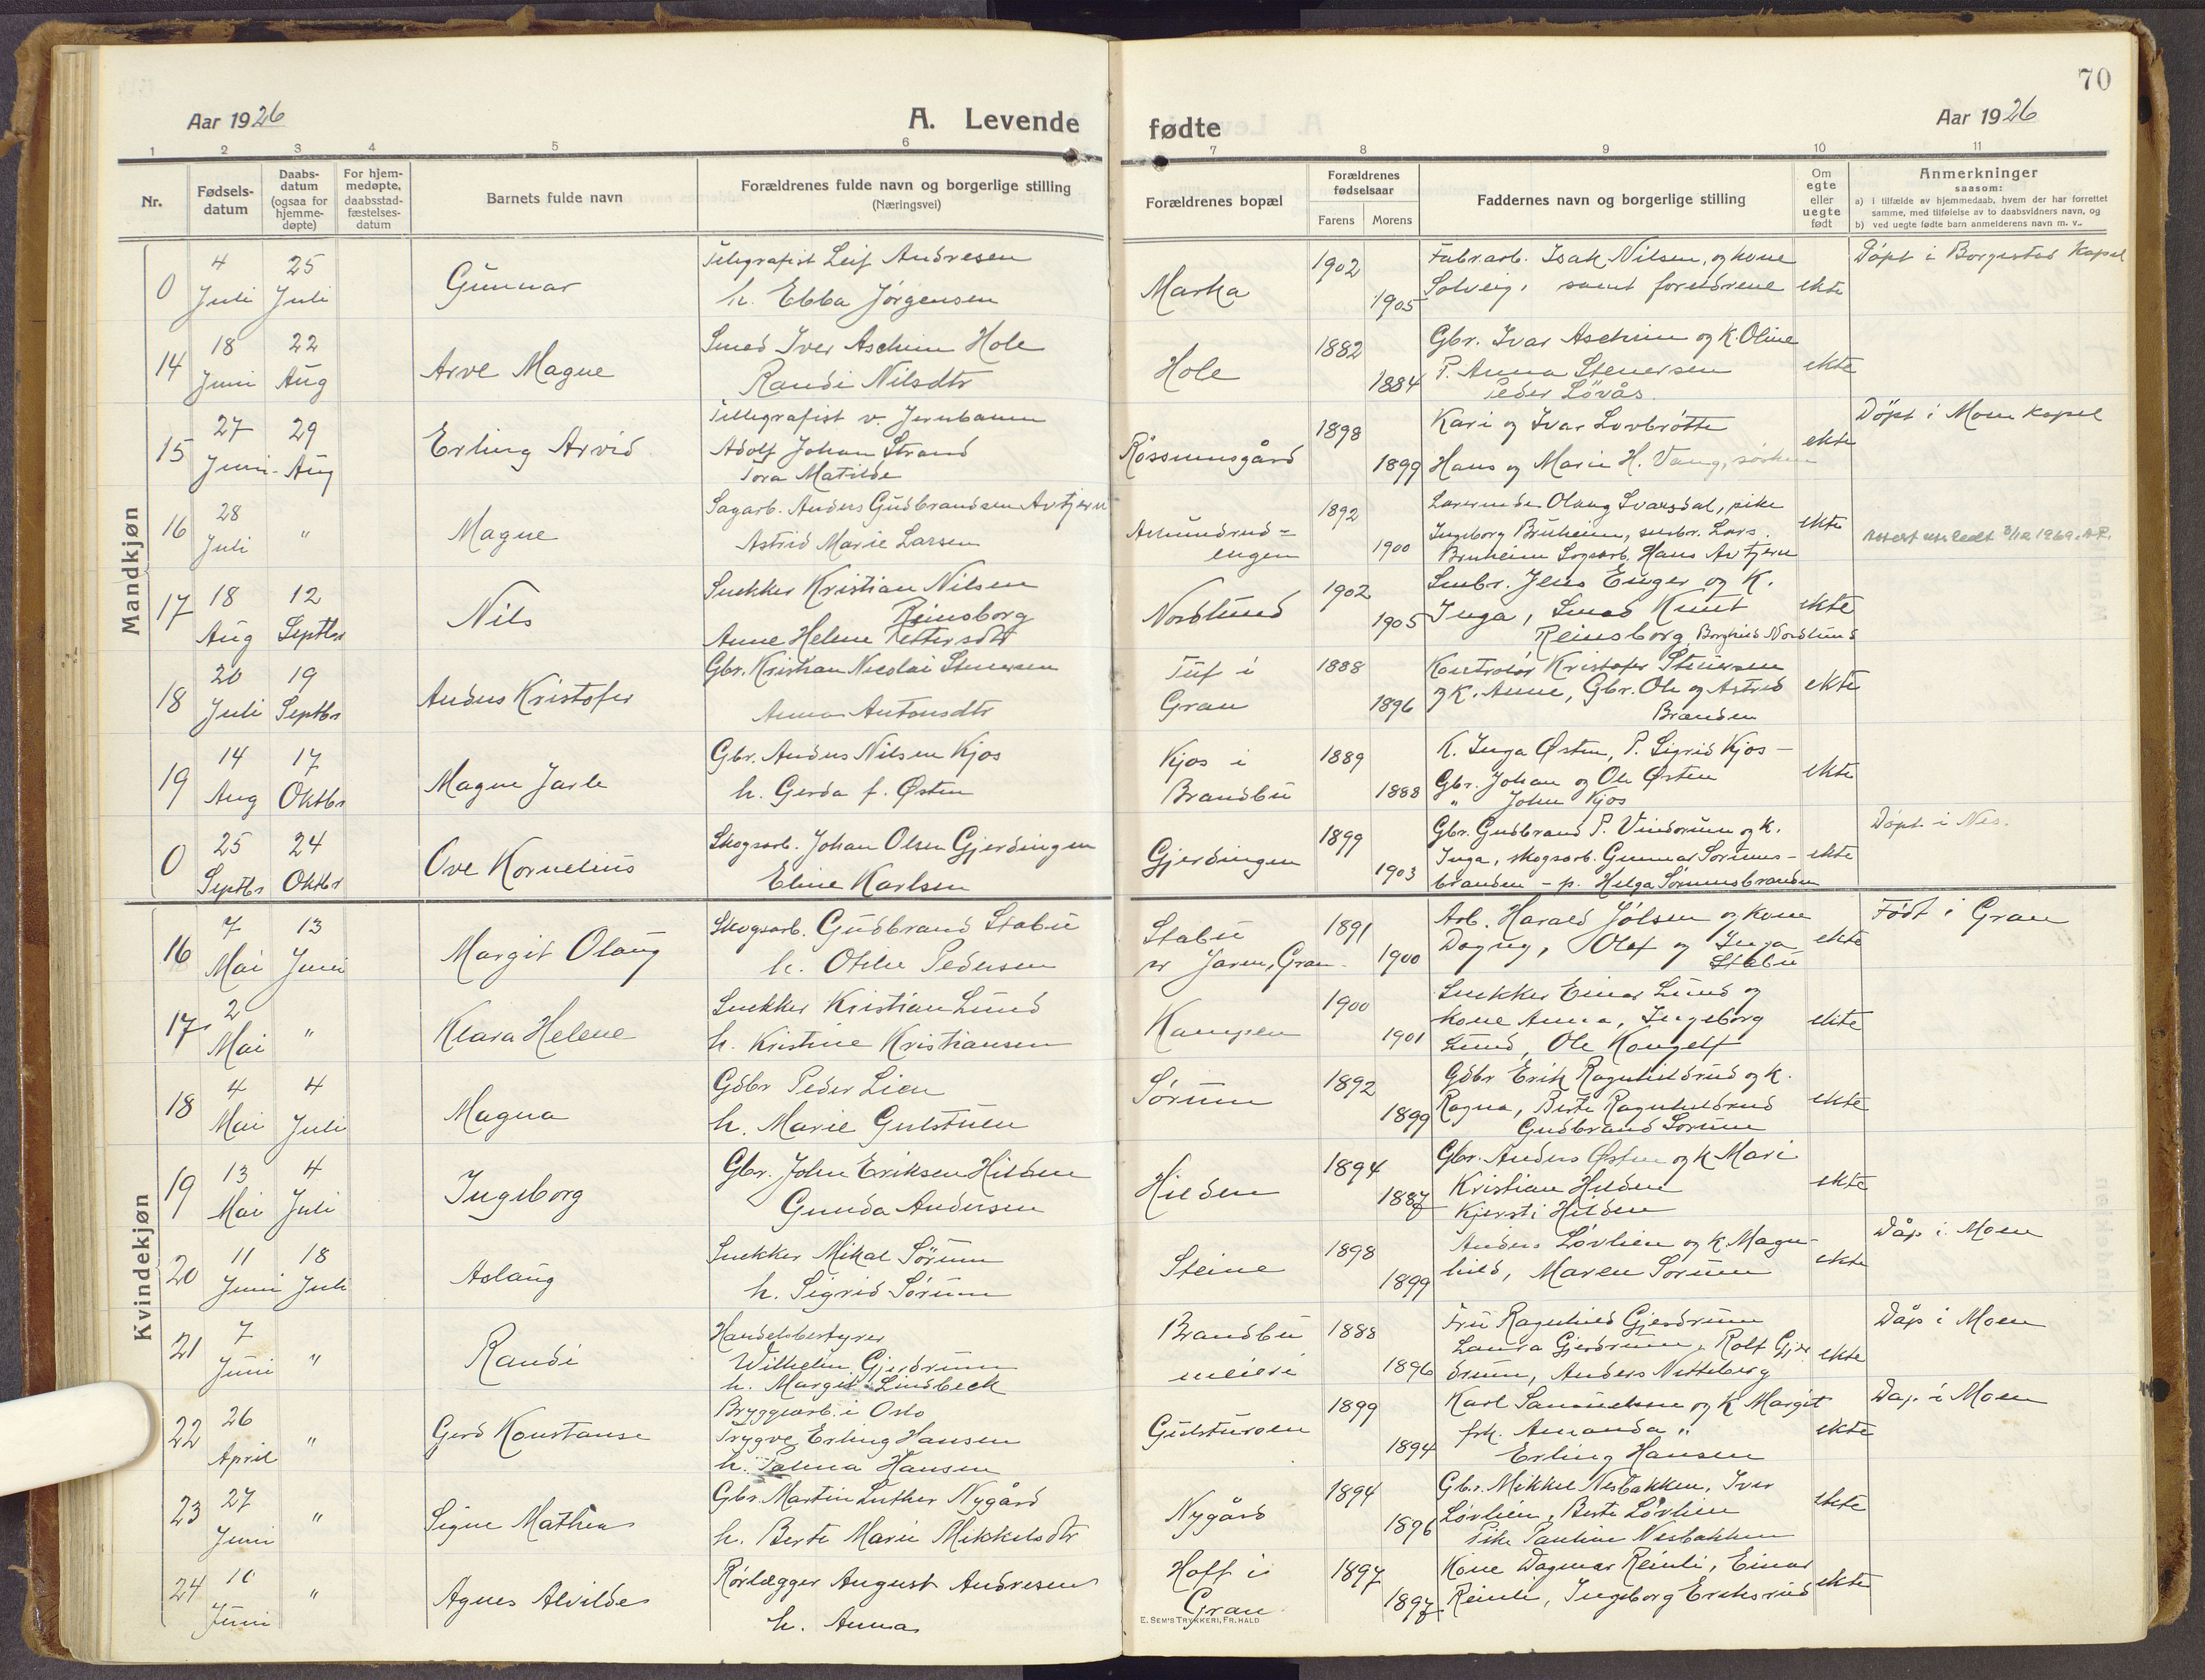 70
Aar 1926
A. Levende
fødte
Aar 1926
1 2 3 4 5 6 7 8 9 10 11
Nr.
Fødsels-
datum
Daabs-
datum
(ogsaa for
hjemme-
døpte)
For hjem-
medøpte,
daabsstad-
fæstelses-
datum
Barnets fulde navn
Forældrenes fulde navn og borgerlige stilling
(Næringsvei)
Forældrenes bopæl
Forældrenes
fødselsaar
Farens Morens
Faddernes navn og borgerlige stilling
Om
egte
eller
uegte
født
Anmerkninger
saasom:
a) i tilfælde av hjemmedaab, hvem der har forrettet
samme, med tilføielse av to daabsvidners navn, og
b) ved uegte fødte barn anmelderens navn m. v..
Mandkjøn
0
4
Juli
25
Juli
Gunnar
Telegrafist Leif Andresen
h. Ebba Jørgensen
Marka
1902
1905
Fabr.arb. Isak Nilsen, og kone
Solveig, samt foreldrene
ekte
Döpt i Borgestad Kapel
14
18
Juni
22
Aug
Arve Magne
Smed Iver Aschim Hole
Randi Nilsdtr
Hole
1882
1884
Gbr. Ivar Aschim og K. Oline
P. Anna Stenersen
Peder Lövås.
ekte
15
27
Juni
29
Aug
Erling Arvid
Tellegrafist v. Jernbanen
Adolf Johan Strand
Tora Matilde
Røssumsgård
1898
1899
Kari og Ivar Lovbrøtte
Hans og Marie H. Vang, sösken
ekte
Döpt i Moen Kapel
16
28
Juli
"
Magne
Sagarb. Anders Gudbrandsen Avtjern
Astrid Marie Larsen
Asmundrud=
engen
1892
1900
Lærerinde Olaug Svarsdal, pike
Ingeborg Bruheim, smbr. Lars
Bruheim Sagarb. Hans Avtjern
ekte
1969
17
18
Aug
12
Septbr
Nils
Snekker Kristian Nilsen
Reinsborg
Anne Helene Pettersdtr
Nordlund
1902
1905
Smbr. Jens Enger og K.
Inga, Smed Knut
Reinsborg, Borghild Nordlund
ekte
18
20
Juli
19
Septbr
Anders Kristofer
Gbr. Kristian Nicolai Stenersen
Anna Antonsdtr
Tuf i
Gran
1888
1896
Kontrolør Kristofer Stenersen
og K. Anne, Gbr. Ole og Astrid
Branden
ekte
19
14
Aug
17
Oktbr
Magne Jarle
Gbr. Anders Nilsen Kjos
h. Gerda f. Østen
Kjos i
Brandbu
1889
1888
K. Inga Østen, P. Sigrid Kjos -
Gbr. Johan og Ole Østen
" John Kjos
ekte
0
25
Septbr
24
Oktbr
Ove Kornelius
Skogsarb. Johan Olsen Gjerdingen
Eline Karlsen
Gjerdingen
1899
1903
Gbr. Gudbrand P. Vindorum og K.
Inga, skogsarb. Gunnar Sørums-
branden - p. Helga Sørumsbranden
ekte
Döpt i Nes.
Kvindekjøn
16
7
Mai
13
Juni
Margit Olaug
Skogsarb. Gudbrand Stabu
h. Otilie Pedersen
Stabu
pr Jaren, Gran
1891
1900
Arb. Harald Jölsen og kone
Dagny, Olaf og Inga
Stabu
ekte
Född i Gran
17
2
Mai
"
Klara Helene
Snekker Kristian Lund
h. Kristine Kristiansen
Kampen
1900
1901
Snekker Einar Lund og
kone Anna, Ingeborg
Lund, Ole Kongelf
ekte
18
4
Mai
4
Juli
Magna
Gdbr Peder Lien
h. Marie Gulstuen
Sørum
1892
1899
Gdbr Erik Ragnhildrud og k.
Ragna, Berte Ragnhildrud
Gudbrand Sørum
ekte
19
13
Mai
4
Juli
Ingeborg
Gbr. John Eriksen Hilden
Gunda Andersen
Hilden
1894
1887
Gbr. Anders Østen og K Mari
Kristian Hilden
Kjersti Hilden
ekte
20
11
Juni
18
Juli
Aslaug
Snekker Mikal Sørum
h. Sigrid Sørum
Steine
1898
1899
Anders Løvlien og K Magn-
hild, Maren Sørum
ekte
Dåp i Moen
21
7
Juni
"
Randi
Handelsbestyrer
Wilhelm Gjerdrum
h. Margit Lindbeck
Brandbu
meieri
1888
1896
Fru Ragnhild Gjerdrum
Laura Gjerdrum, Rolf Gjer
drum, Anders Netteberg
ekte
Dåp i Moen
22
26
April
"
Gerd Konstanse
Bryggearb. i Oslo
Trygve Erling Hansen
h. Palma Hansen
Gulsturoen
1899
1894
Karl Samuelsen og K Margit
frk. Amanda "
Erling Hansen
ekte
Dåp i Moen
23
27
Juni
"
Signe Mathea
Gbr. Martin Luther Nygård
h. Berte Marie Mikkelsdtr
Nygård
1894
1896
Gbr. Mikkel Nesbakken, Iver
Løvlien, Berte Løvlien
Pike Pauline Nesbakken
ekte
24
10
Juni
"
Agnes Alvilde
Rørlægger August Andresen
h. Anna
Hoff i
Gran
1897
1897
Kone Dagmar Reinli, Einar
Reinli, Ingeborg Eriksrud
ekte
E. SEM'S TRYKKERI, FR.HALD